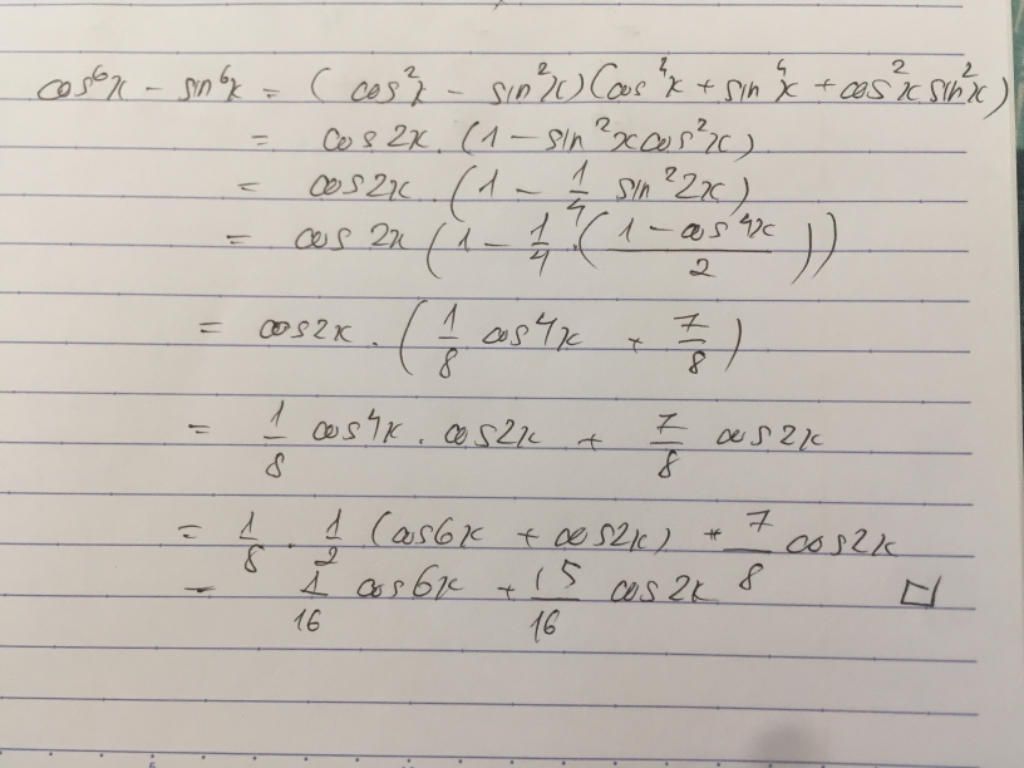 cos⁶x - sin⁶x = (cos²x - sin²x)(cos⁴x + sin⁴x + cos²x sin²x)
= cos2x.(1 - sin²xcos²x)
= cos2x.(1 - 1/4 sin²2x)
= cos 2x(1 - 1/4.((1 - cos4x)/2))
= cos2x.(1/8 cos4x + 7/8)
= 1/8 cos4x.cos2x + 7/8 cos2x
= 1/8 . 1/2 (cos6x + cos2x) + 7/8 cos2x
= 1/16 cos6x + 15/16 cos2x □